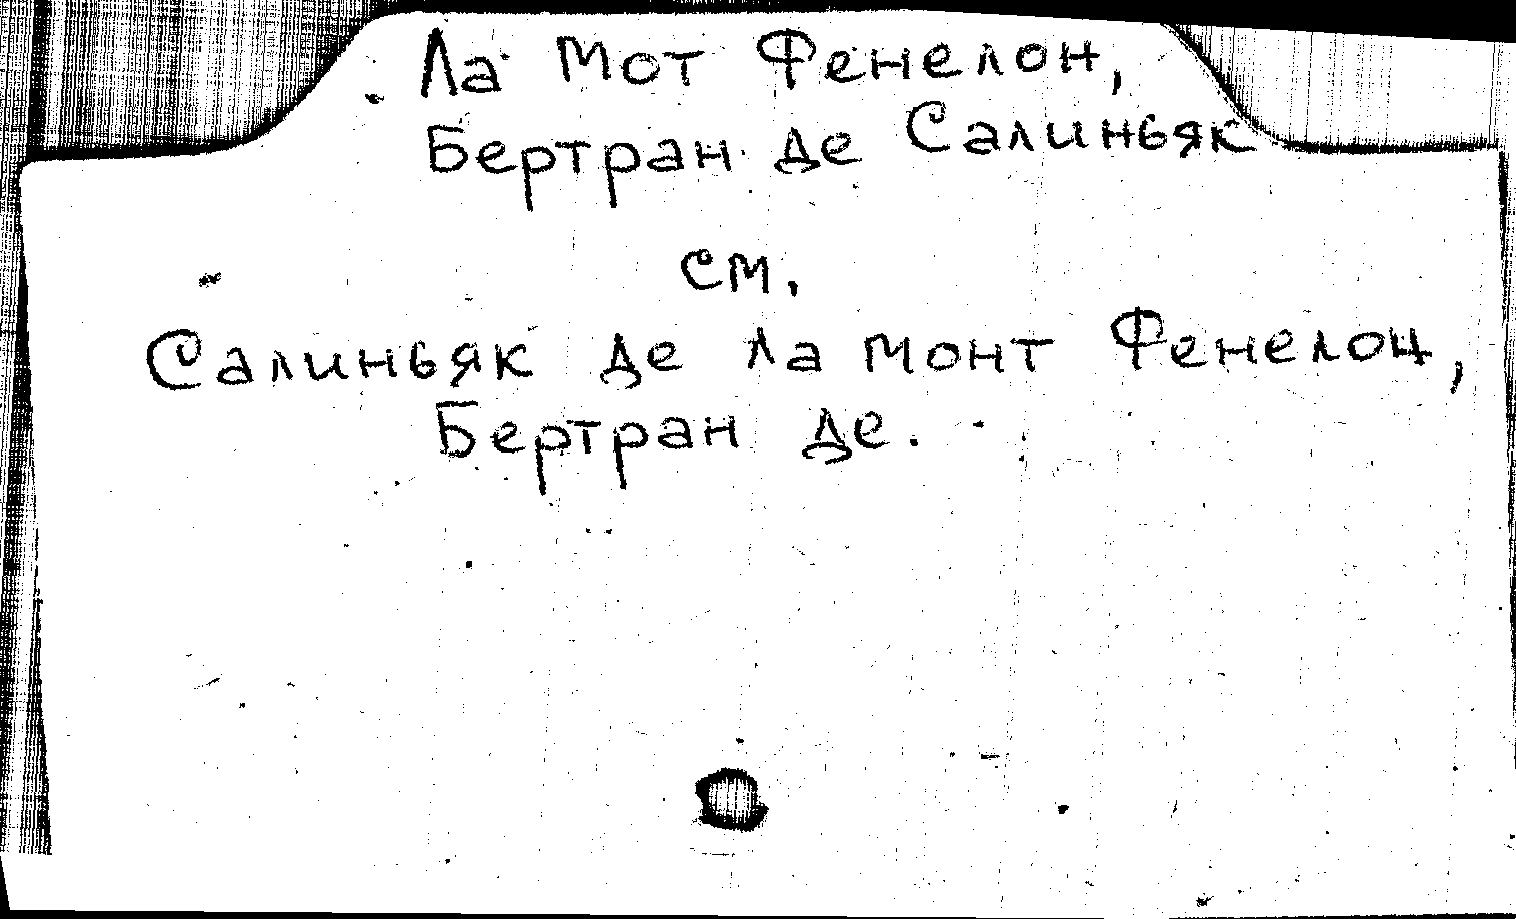 Ла Мот Фенелон,
Бертран де Салиньяк
см.
Салиньяк де ла Монт Фенелон,
Бертран де.